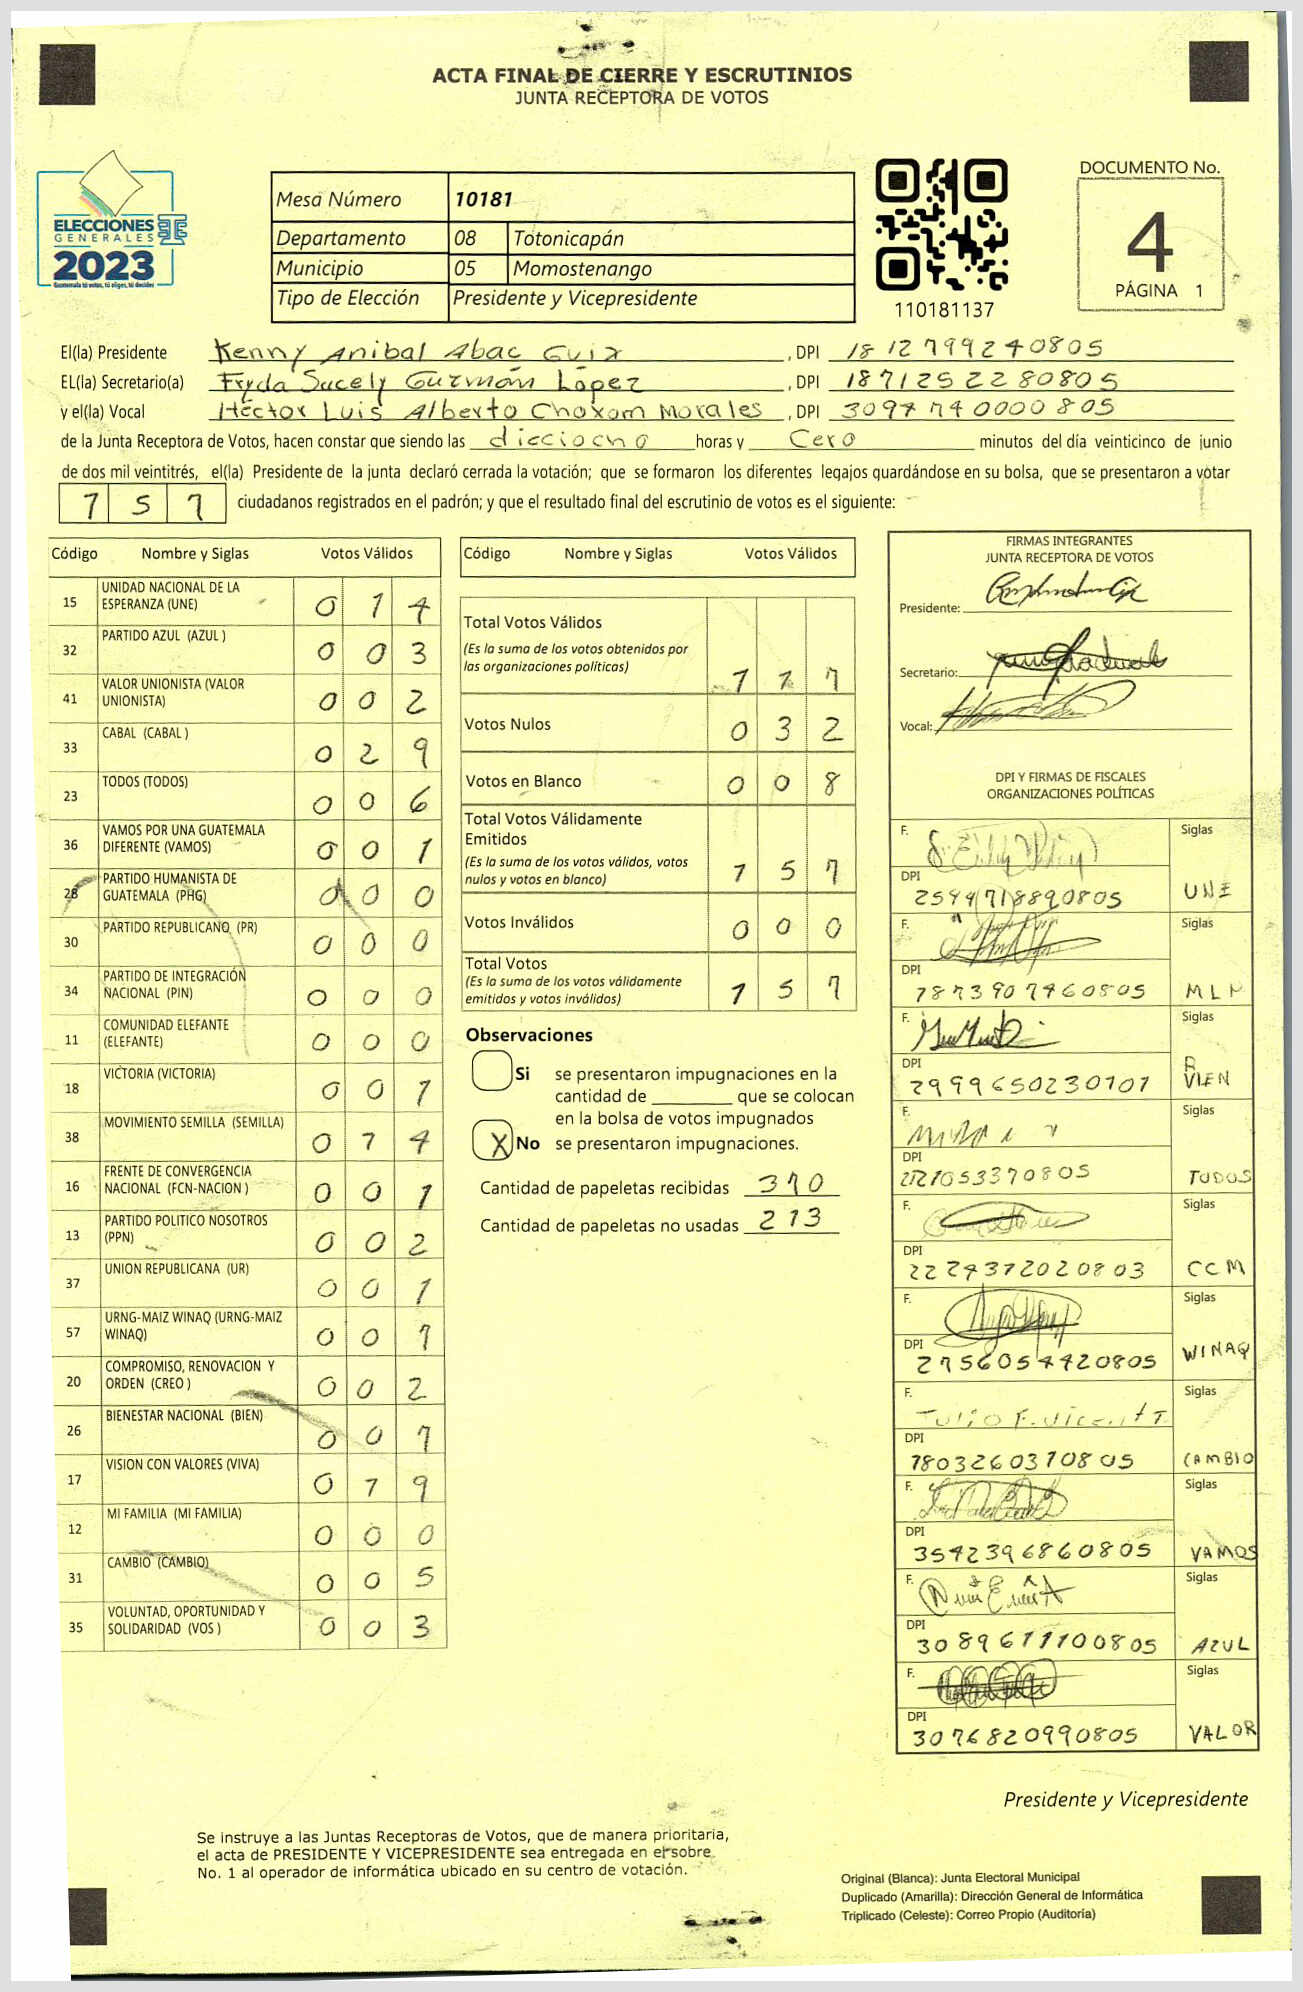 ACTA FINAL DE CIERRE Y ESCRUTINIOS
JUNTA RECEPTORA DE VOTOS
ELECCIONES
GENERALES
2023
Guatemala tú votas, tú eliges, tú decides
Mesa Número 10181
Departamento 08 Totonicapán
Municipio 05 Momostenango
Tipo de Elección Presidente y Vicepresidente
110181137
DOCUMENTO No.
4
PÁGINA 1
El(la) Presidente Kenny Anibal Abac Guix, DPI 1812799240805
EL(la) Secretario(a) Fryda Sucely Guzmán López, DPI 1871252280805
y el(la) Vocal Héctor Luis Alberto Choxom Morales, DPI 3097740000805
de la Junta Receptora de Votos, hacen constar que siendo las dieciocho horas y Cero minutos del día veinticinco de junio
de dos mil veintitrés, el(la) Presidente de la junta declaró cerrada la votación; que se formaron los diferentes legajos guardándose en su bolsa, que se presentaron a votar
157 ciudadanos registrados en el padrón; y que el resultado final del escrutinio de votos es el siguiente:
Código Nombre y Siglas Votos Válidos
15 UNIDAD NACIONAL DE LA ESPERANZA (UNE) 0 1 4
32 PARTIDO AZUL (AZUL ) 0 0 3
41 VALOR UNIONISTA (VALOR UNIONISTA) 0 0 2
33 CABAL (CABAL ) 0 2 9
23 TODOS (TODOS) 0 0 6
36 VAMOS POR UNA GUATEMALA DIFERENTE (VAMOS) 0 0 1
28 PARTIDO HUMANISTA DE GUATEMALA (PHG) 0 0 0
30 PARTIDO REPUBLICANO (PR) 0 0 0
34 PARTIDO DE INTEGRACIÓN NACIONAL (PIN) 0 0 0
11 COMUNIDAD ELEFANTE (ELEFANTE) 0 0 0
18 VICTORIA (VICTORIA) 0 0 1
38 MOVIMIENTO SEMILLA (SEMILLA) 0 1 4
16 FRENTE DE CONVERGENCIA NACIONAL (FCN-NACION ) 0 0 1
13 PARTIDO POLITICO NOSOTROS (PPN) 0 0 2
37 UNION REPUBLICANA (UR) 0 0 1
57 URNG-MAIZ WINAQ (URNG-MAIZ WINAQ) 0 0 7
20 COMPROMISO, RENOVACION Y ORDEN (CREO ) 0 0 2
26 BIENESTAR NACIONAL (BIEN) 0 0 7
17 VISION CON VALORES (VIVA) 0 1 9
12 MI FAMILIA (MI FAMILIA) 0 0 0
31 CAMBIO (CAMBIO) 0 0 5
35 VOLUNTAD, OPORTUNIDAD Y SOLIDARIDAD (VOS ) 0 0 3
Código Nombre y Siglas Votos Válidos
Total Votos Válidos
(Es la suma de los votos obtenidos por
las organizaciones políticas) 1 1 7
Votos Nulos 0 3 2
Votos en Blanco 0 0 8
Total Votos Válidamente
Emitidos
(Es la suma de los votos válidos, votos
nulos y votos en blanco) 1 5 7
Votos Inválidos 0 0 0
Total Votos
(Es la suma de los votos válidamente
emitidos y votos inválidos) 1 5 7
Observaciones
Si se presentaron impugnaciones en la
cantidad de ________ que se colocan
en la bolsa de votos impugnados
X No se presentaron impugnaciones.
Cantidad de papeletas recibidas 370
Cantidad de papeletas no usadas 213
FIRMAS INTEGRANTES
JUNTA RECEPTORA DE VOTOS
Presidente:
Secretario:
Vocal:
DPI Y FIRMAS DE FISCALES
ORGANIZACIONES POLÍTICAS
F. Siglas
DPI
2594718890805 UNE
F. Siglas
DPI
1873907460805 MLP
F. Siglas
DPI
2999650230101 BIEN
F. Siglas
DPI
TODOS
F. Siglas
DPI
2224372020803 CCM
F. Siglas
DPI
2756054420805 WINAQ
F. Julio F. Vicent T. Siglas
DPI
1803260370805 CAMBIO
F. Siglas
DPI
3542396860805 VAMOS
F. Siglas
DPI
3089611100805 AZUL
F. Siglas
DPI
3076820990805 VALOR
Presidente y Vicepresidente
Se instruye a las Juntas Receptoras de Votos, que de manera prioritaria,
el acta de PRESIDENTE Y VICEPRESIDENTE sea entregada en el sobre
No. 1 al operador de informática ubicado en su centro de votación.
Original (Blanca): Junta Electoral Municipal
Duplicado (Amarilla): Dirección General de Informática
Triplicado (Celeste): Correo Propio (Auditoría)